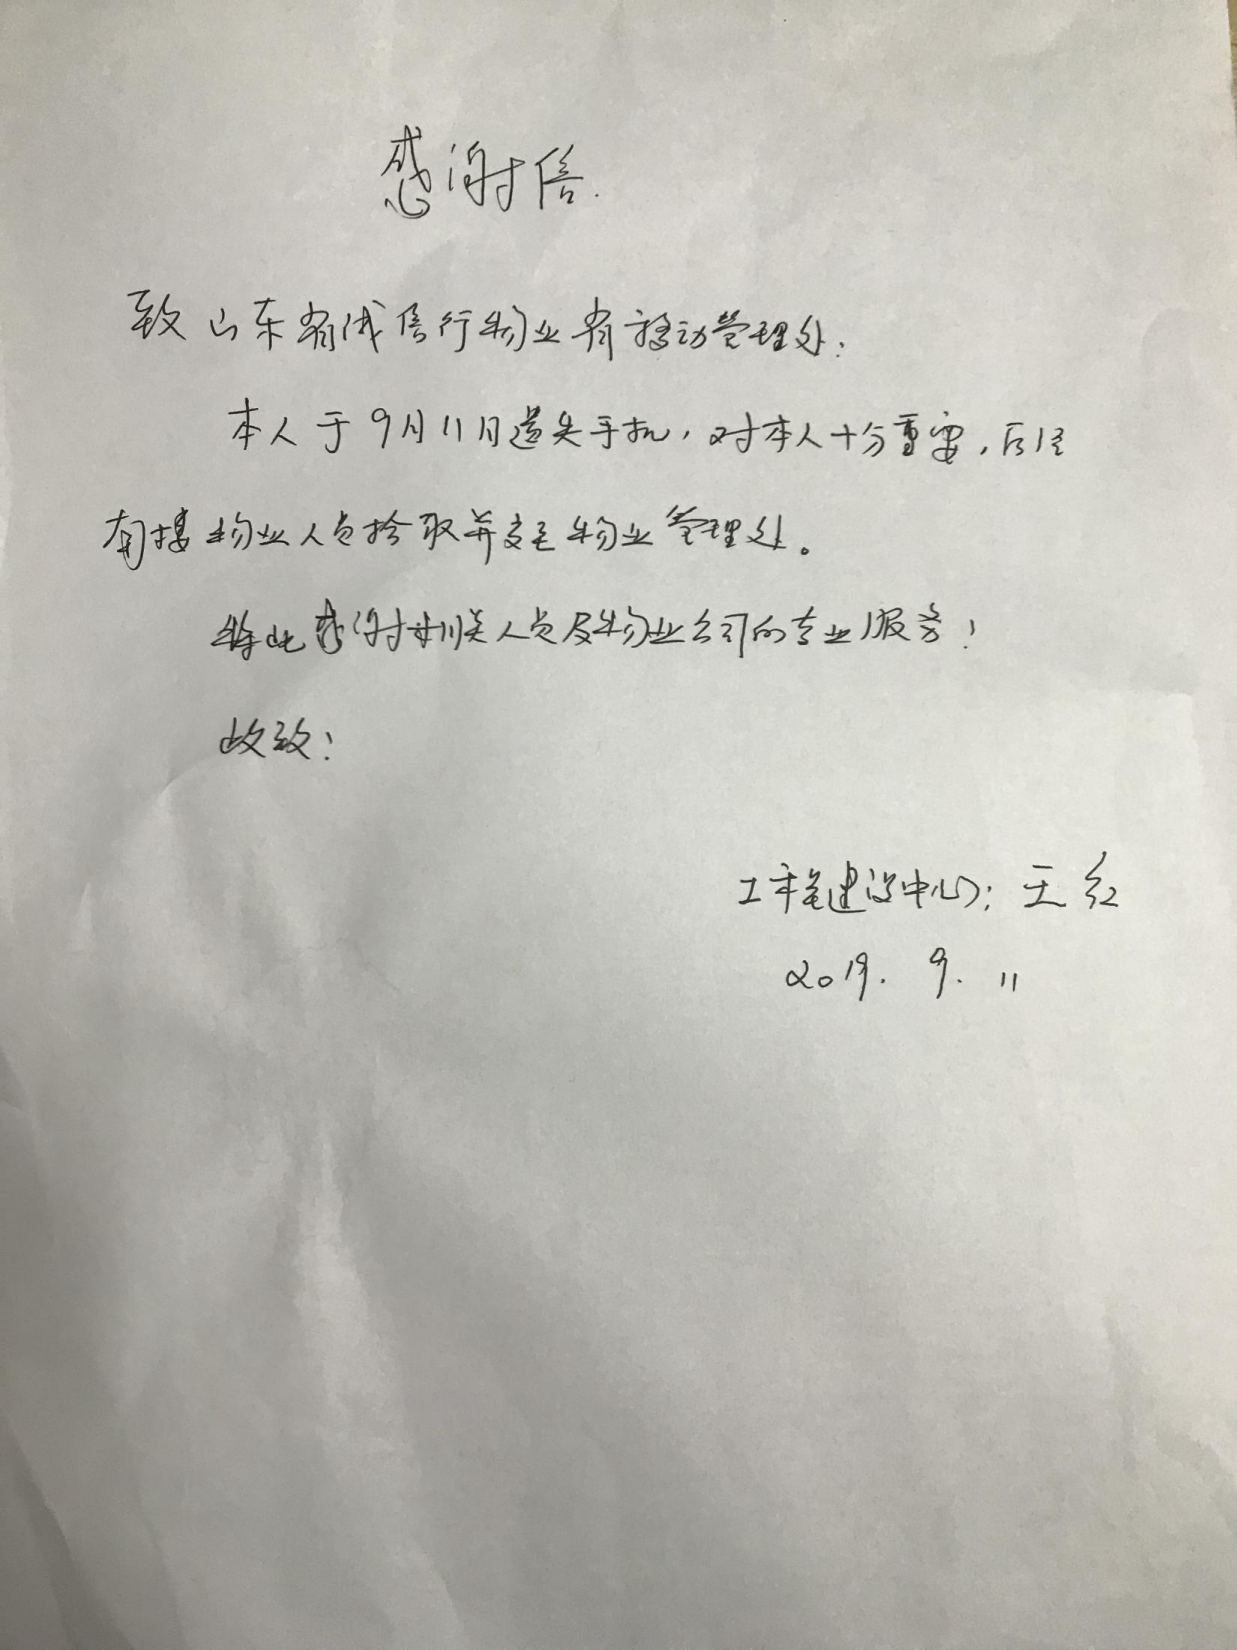 感谢信.
致山东省诚信行物业省移动管理处:
本人于9月11日遗失手机,对本人十分重要,后经
南楼物业人员拾取并交至物业管理处。
特此感谢相关人员及物业公司的专业服务!
此致!
工程建设中心: 王红
2019. 9. 11